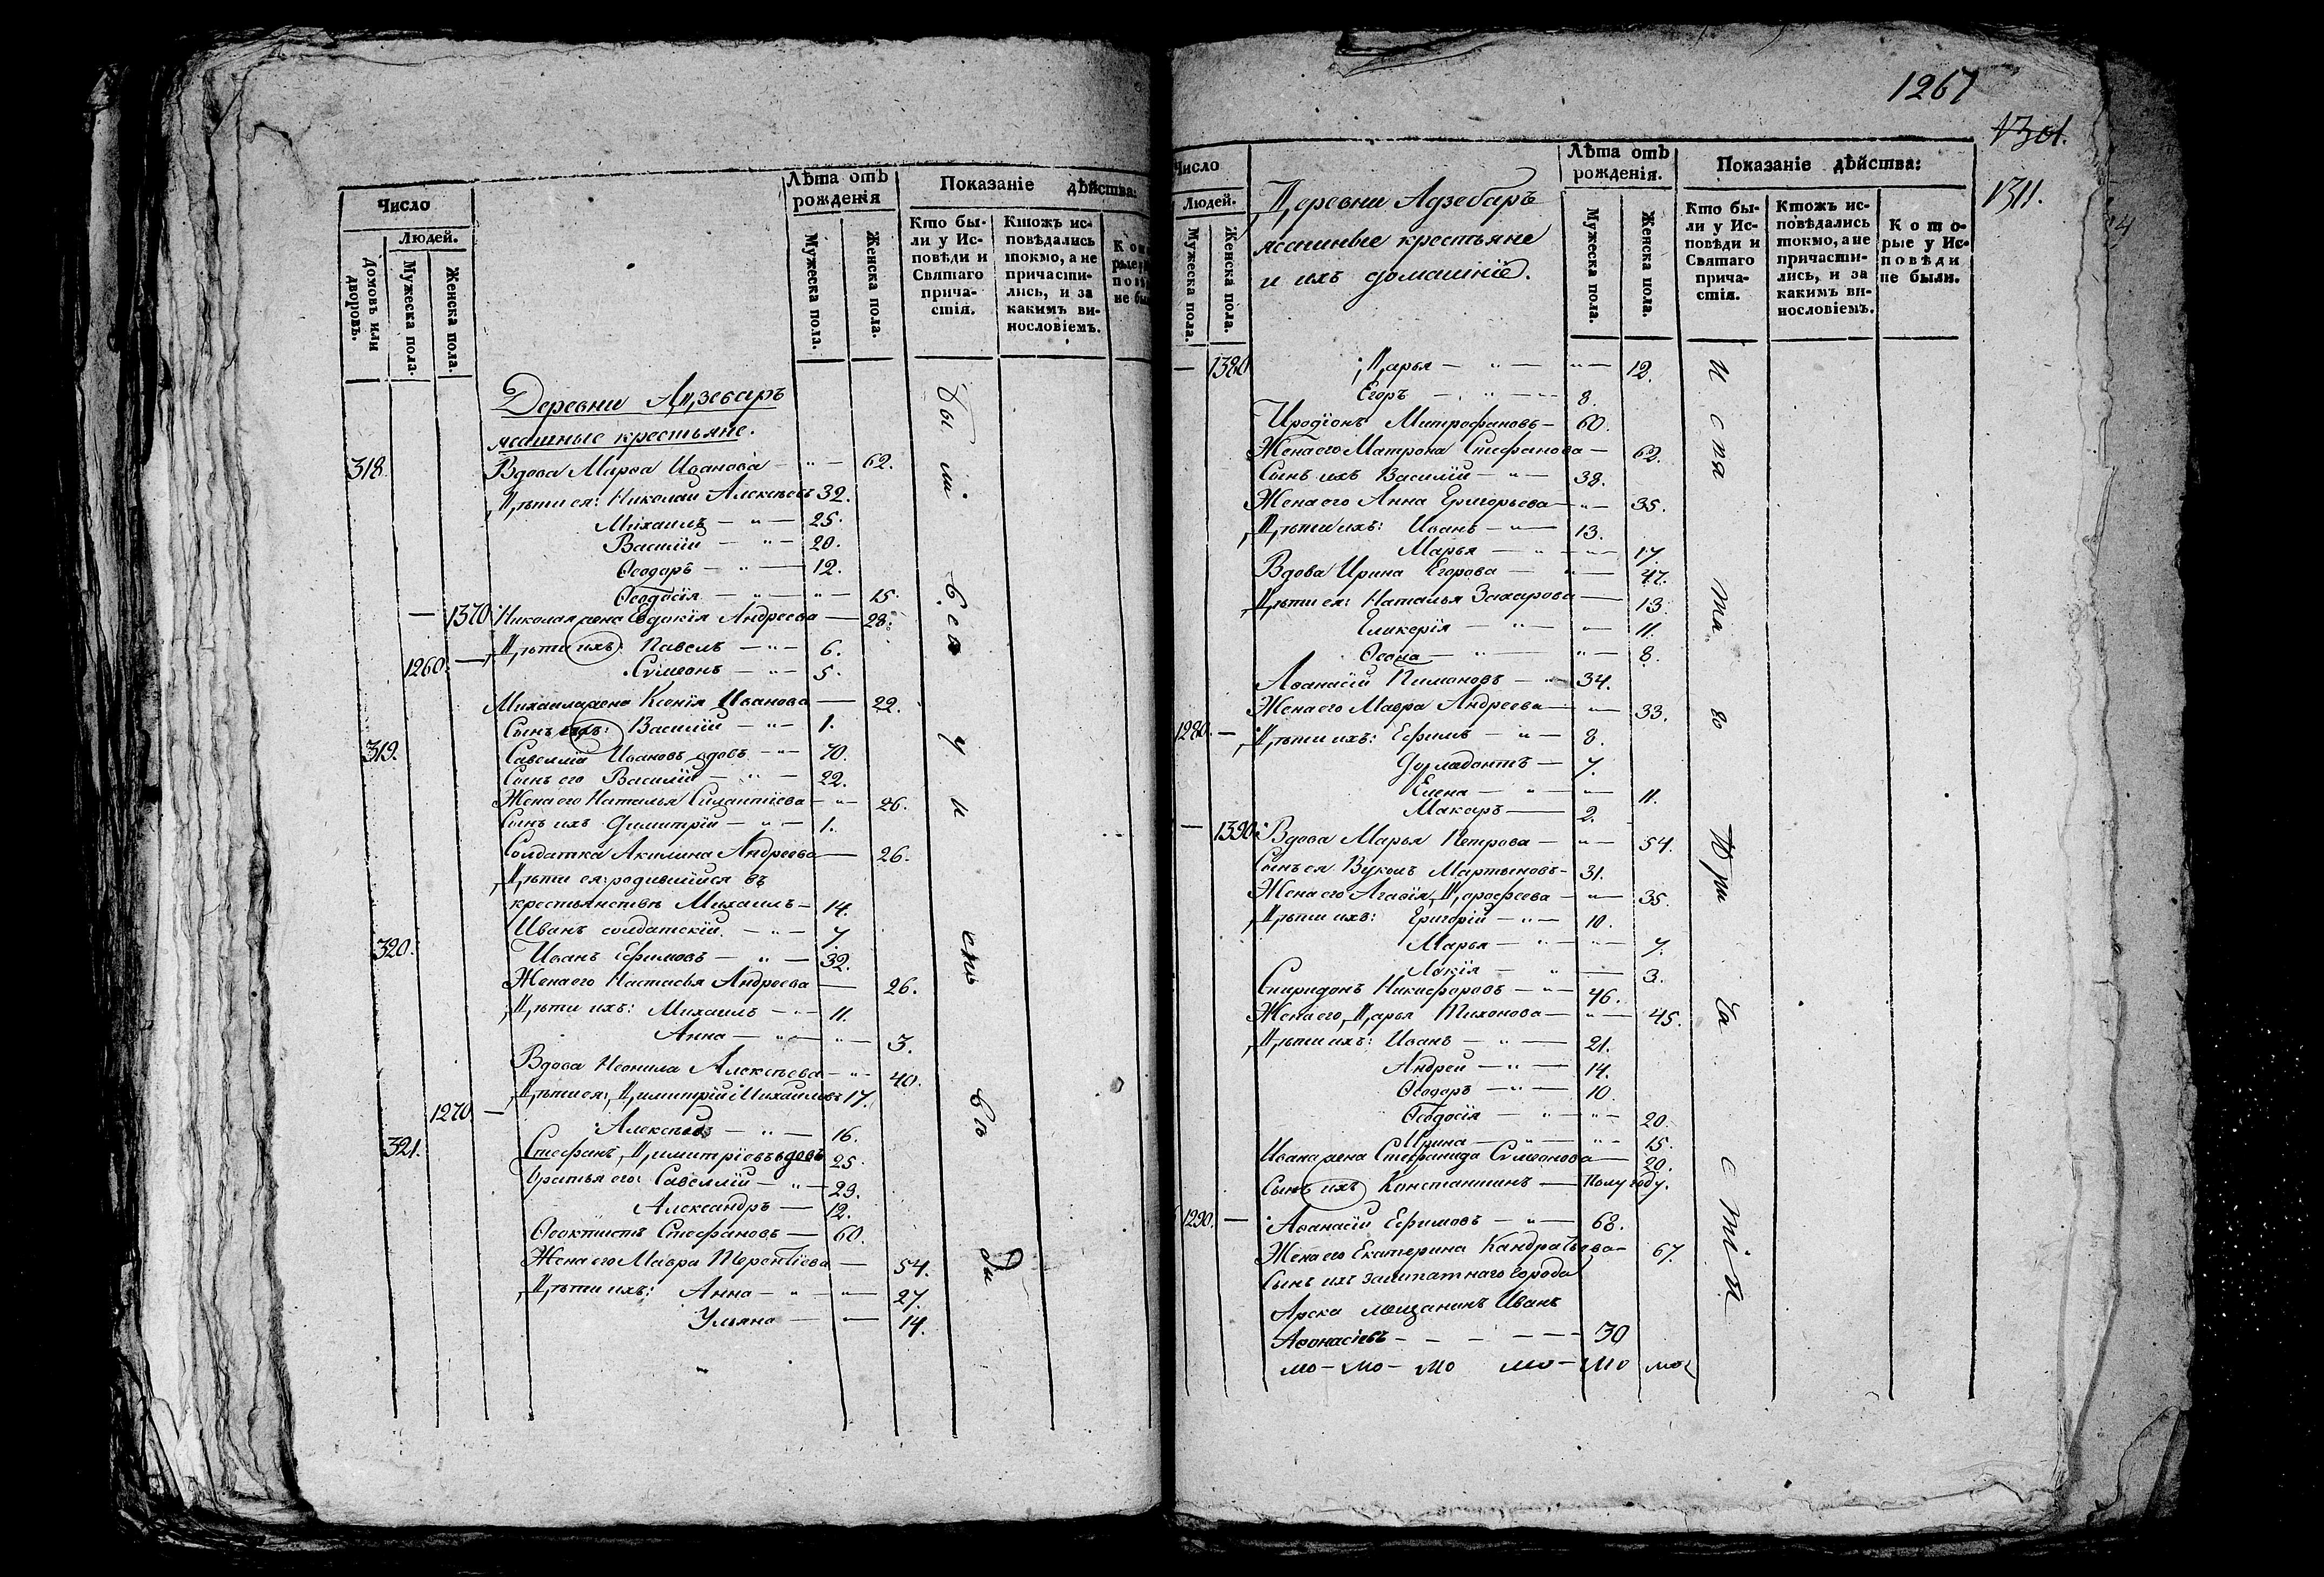 Число
Людей.
Домовъ или дворовъ.
Мужеска пола.
Женска пола.
Лѣта отъ рожденія
Мужеска пола.
Женска пола.
Показаніе дѣйства:
Кто бы-
ли у Ис-
повѣди и
Святаго
прича-
стія.
Ктожъ ис-
повѣдались
токмо, а не
причасти-
лись, и за
какимъ ви-
нословіемъ.
Деревни Адзебаръ
ясашные крестьяне.
318. Вдова Марѳа Иванова — " — 62.
Дѣти ея: Николай Алексѣевъ 32.
Михаилъ — " — 25.
Василій — " — 20.
Ѳеодоръ — " — 12.
Ѳеодосія — " — " — 15.
— 1370 Николая жена Евдокія Андреева — 28.
1260. — Дѣти ихъ: Павелъ — " — 6.
Сѵмеонъ — " — 5.
Михаила жена Ксенія Иванова — 22.
Сынъ ихъ: Василій — " — 1.
319. Савелій Ивановъ вдовъ — " — 70.
Сынъ его Василій — " — 22.
Жена его Наталья Силантіева — " — 26.
Сынъ ихъ Димитрій — " — 1.
Солдатка Акилина Андреева — 26.
Дѣти ея: родившійся въ
крестьянствѣ Михаилъ — 14.
Иванъ солдатскій — " — 7.
320. Иванъ Ефимовъ — " — 32.
Жена его Настасья Андреева — 26.
Дѣти ихъ: Михаилъ — " — 11.
Анна — " — " — 3.
Вдова Неонила Алексѣева — " — 40.
Дѣти ея: Димитрій Михайловъ 17.
1270. — Алексѣй — " — 16.
321. Стефанъ Димитріевъ вдовъ 25.
Братья его: Савелій — " — 23.
Александръ — 12.
Ѳеоктистъ Стефановъ — 60.
Жена его Мавра Терентіева — 54.
Дѣти ихъ: Анна — " — " — 27.
Ульяна — " — 14.
1267
1301.
1311.
Число
Людей.
Мужеска пола.
Женска пола.
Деревни Адзебаръ
ясашные крестьяне
и ихъ домашніе.
Лѣта отъ рожденія.
Мужеска пола.
Женска пола.
Показаніе дѣйства:
Кто бы-
ли у Ис-
повѣди и
Святаго
прича-
стія.
Ктожъ ис-
повѣдались
токмо, а не
причасти-
лись, и за
какимъ ви-
нословіемъ.
Кото-
рые у Ис-
повѣди
не были.
— 1380 Дарья — " — " — 12.
Егоръ — " — 8.
Иродіонъ Митрофановъ — 60.
Жена его Матрона Стефанова — 62.
Сынъ ихъ Василій — " — 38.
Жена его Анна Григорьева — " — 35.
Дѣти ихъ: Иванъ — " — 13.
Марья — " — " — 17.
Вдова Ирина Егорова — " — 47.
Дѣти ея: Наталья Захарова — 13.
Гликерія — " — " — 11.
" — 8.
Аѳанасій Пимановъ — " — 34.
Жена его Мавра Андреева — " — 33.
1280. — Дѣти ихъ: Ефимъ — " — 8.
— 7.
Елена — " — " — 11.
Макаръ — 2.
— 1390. Вдова Марья Петрова — " — 54.
Сынъ ея Вуколъ Мартыновъ — 31.
Жена его Агаѳія Дорофеева — " — 35.
Дѣти ихъ: Григорій — " — 10.
Марья — " — " — 7.
— " — 3.
Спиридонъ Никифоровъ — " — 46.
Жена его Дарья Тихонова — " — 45.
Дѣти ихъ: Иванъ — " — 21.
Андрей — " — 14.
Ѳеодоръ — " — 10.
Ѳеодосія — " — " — 20.
Ирина — " — " — 15.
Ивана жена Стефанида Сѵмеонова — 20.
Сынъ ихъ Константинъ — Полугоду.
1290. — Аѳанасій Ефимовъ — " — 68.
Жена его Екатерина Кандратьева — 67.
Сынъ ихъ заштатнаго города
Арска мещанинъ Иванъ
Аѳонасьевъ — — — 30